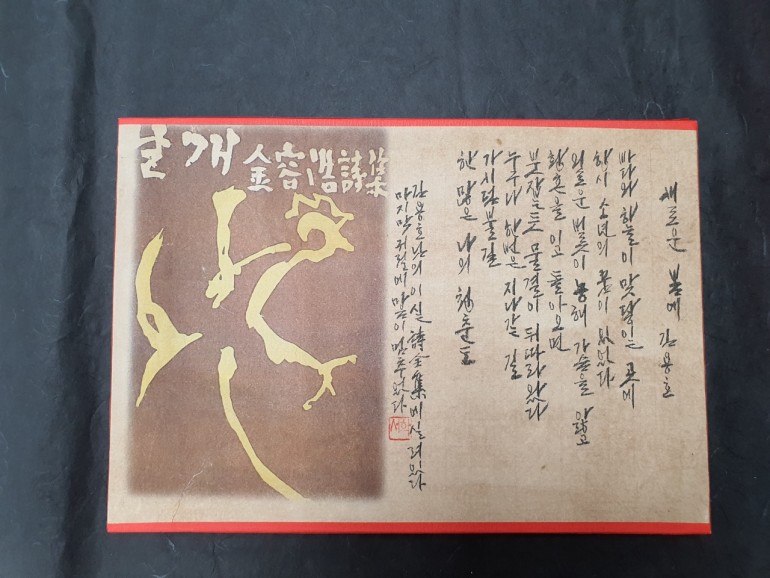 날개
金容浩詩集
새로운 봄에 김용호
바다와 하늘이 맞닿있는 곳에
항시 소년의 꿈이 있었다
외로운 가슴을 앓고
황혼을 잊고 돌아오면
물결이 뒤따라 왔다
누구나 한번은 지나갈 길
가시덤불 길
한 많은 나의 청춘도
김용호님의 이 실 詩全集에 실려있다
마지막 귀절에 마음이 멈추었다